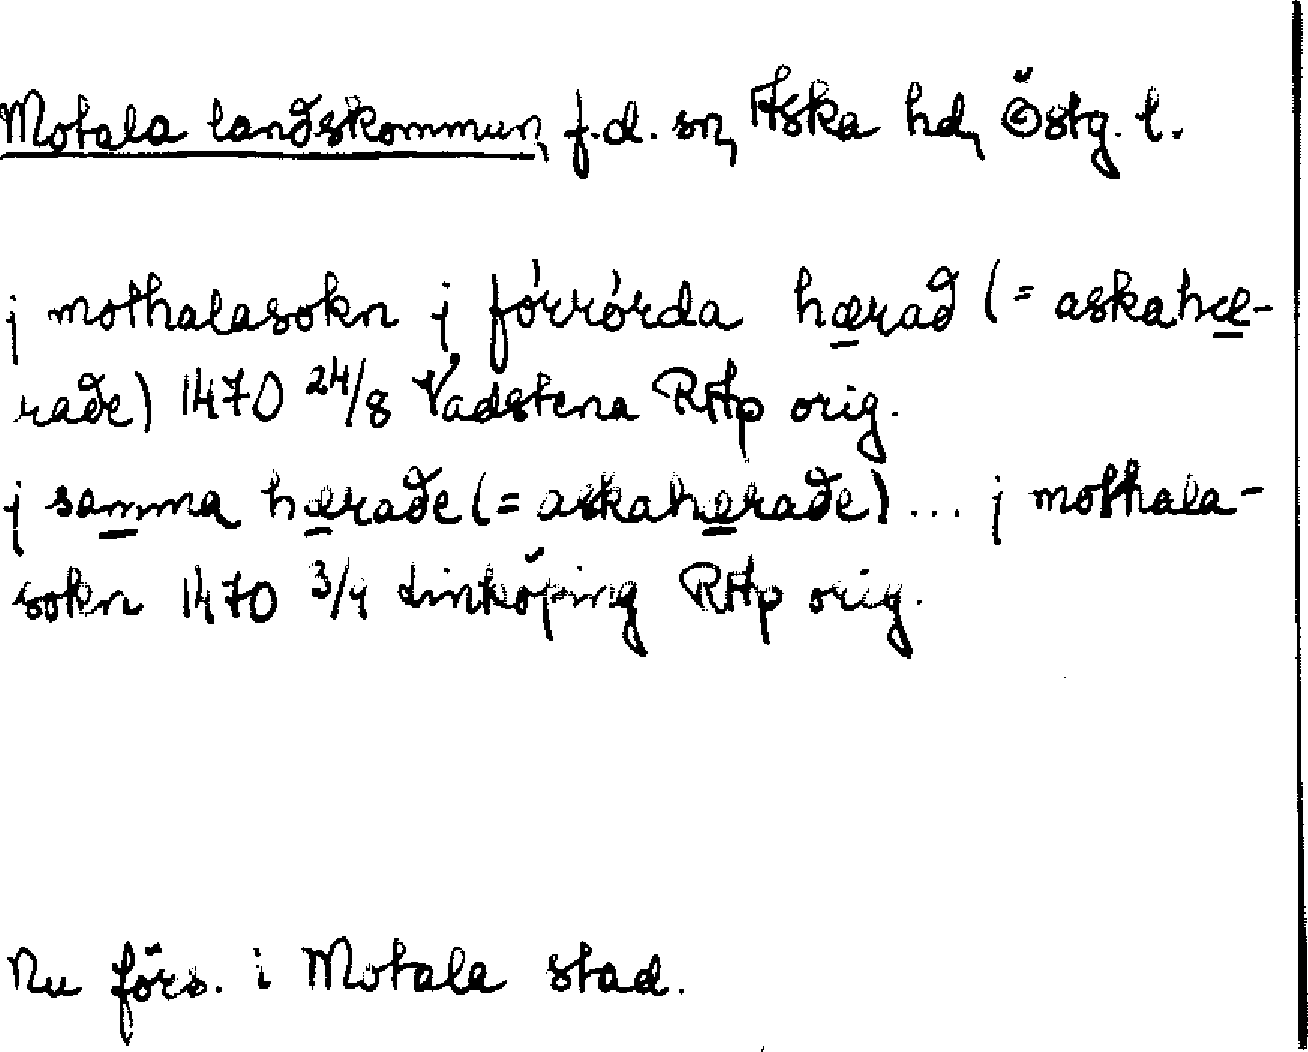 Motala landskommun, f.d. sn, Aska hd, Östg. l.
j mothalasokn j fórrórda hærad (= askahæ-
rade) 1470 24/8 Vadstena RAp orig.
j samma hærade (= askahærade) ... j mothala-
sokn 1470 3/4 Linköping RAp orig.
Nu förs. i Motala stad.